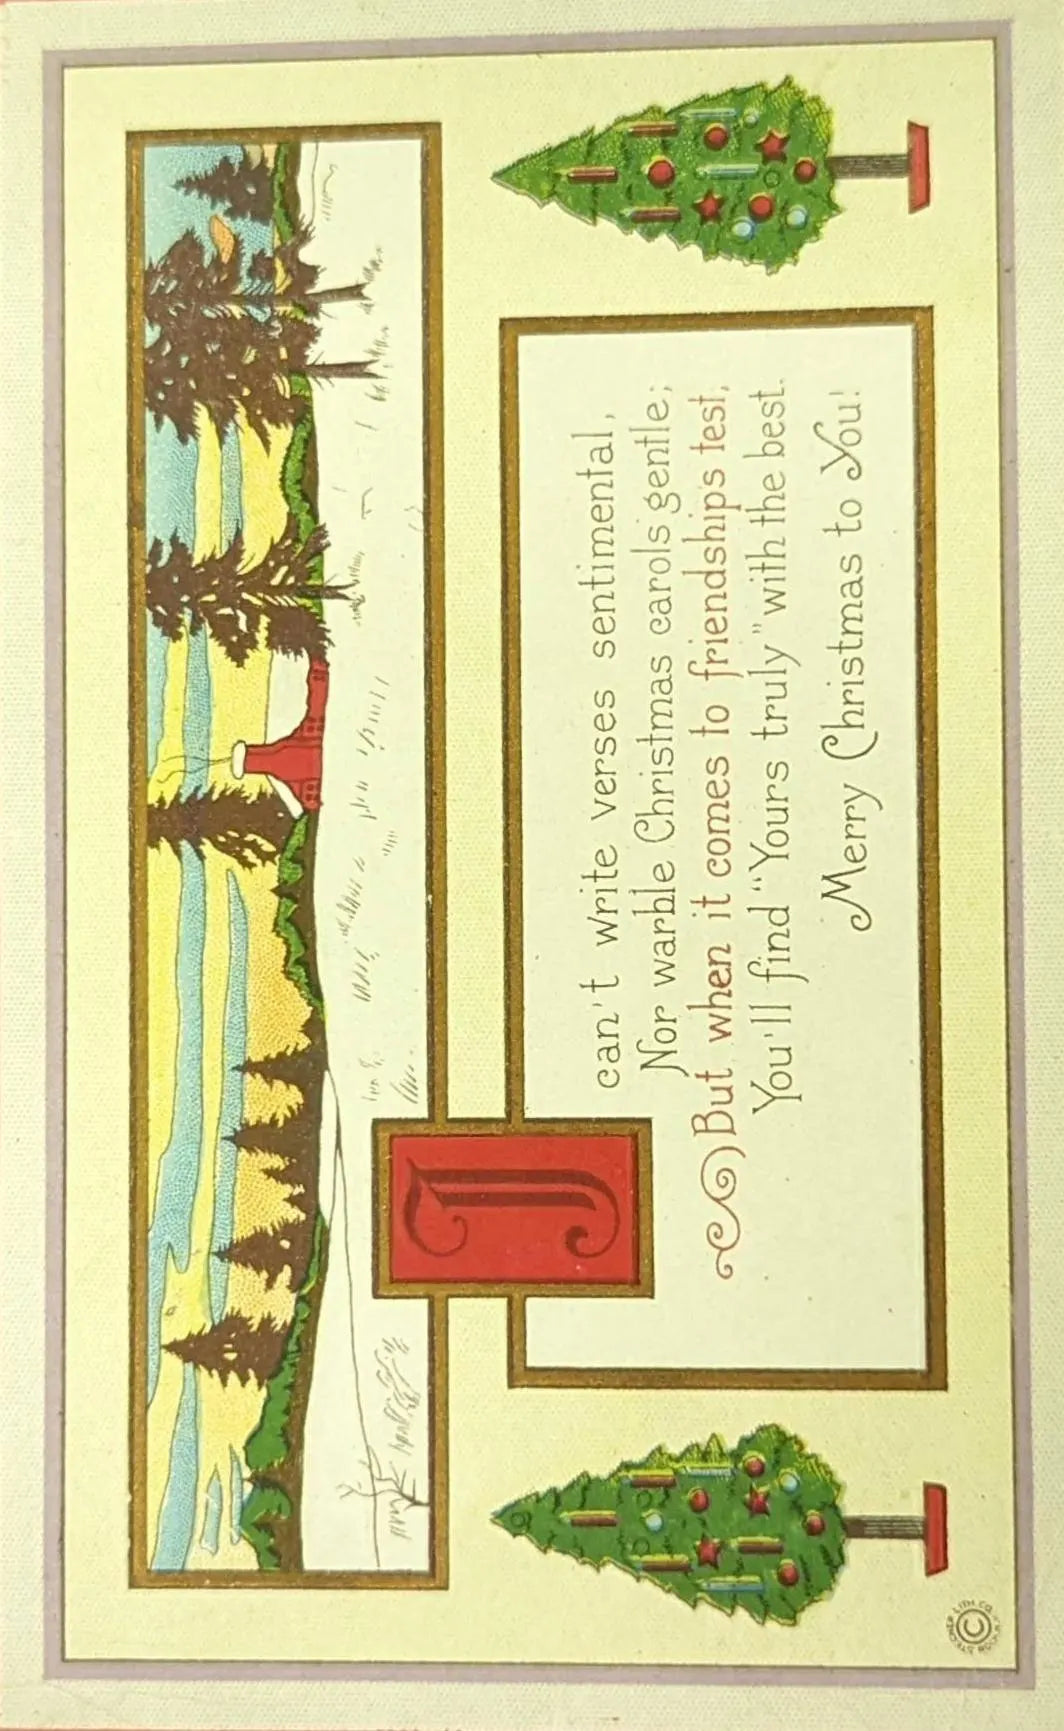 I can't write verses sentimental,
Nor warble Christmas carols gentle;
But when it comes to friendship's test,
You'll find "Yours truly" with the best.
Merry Christmas to You!
© STECHER LITH. CO. ROCH. N.Y.